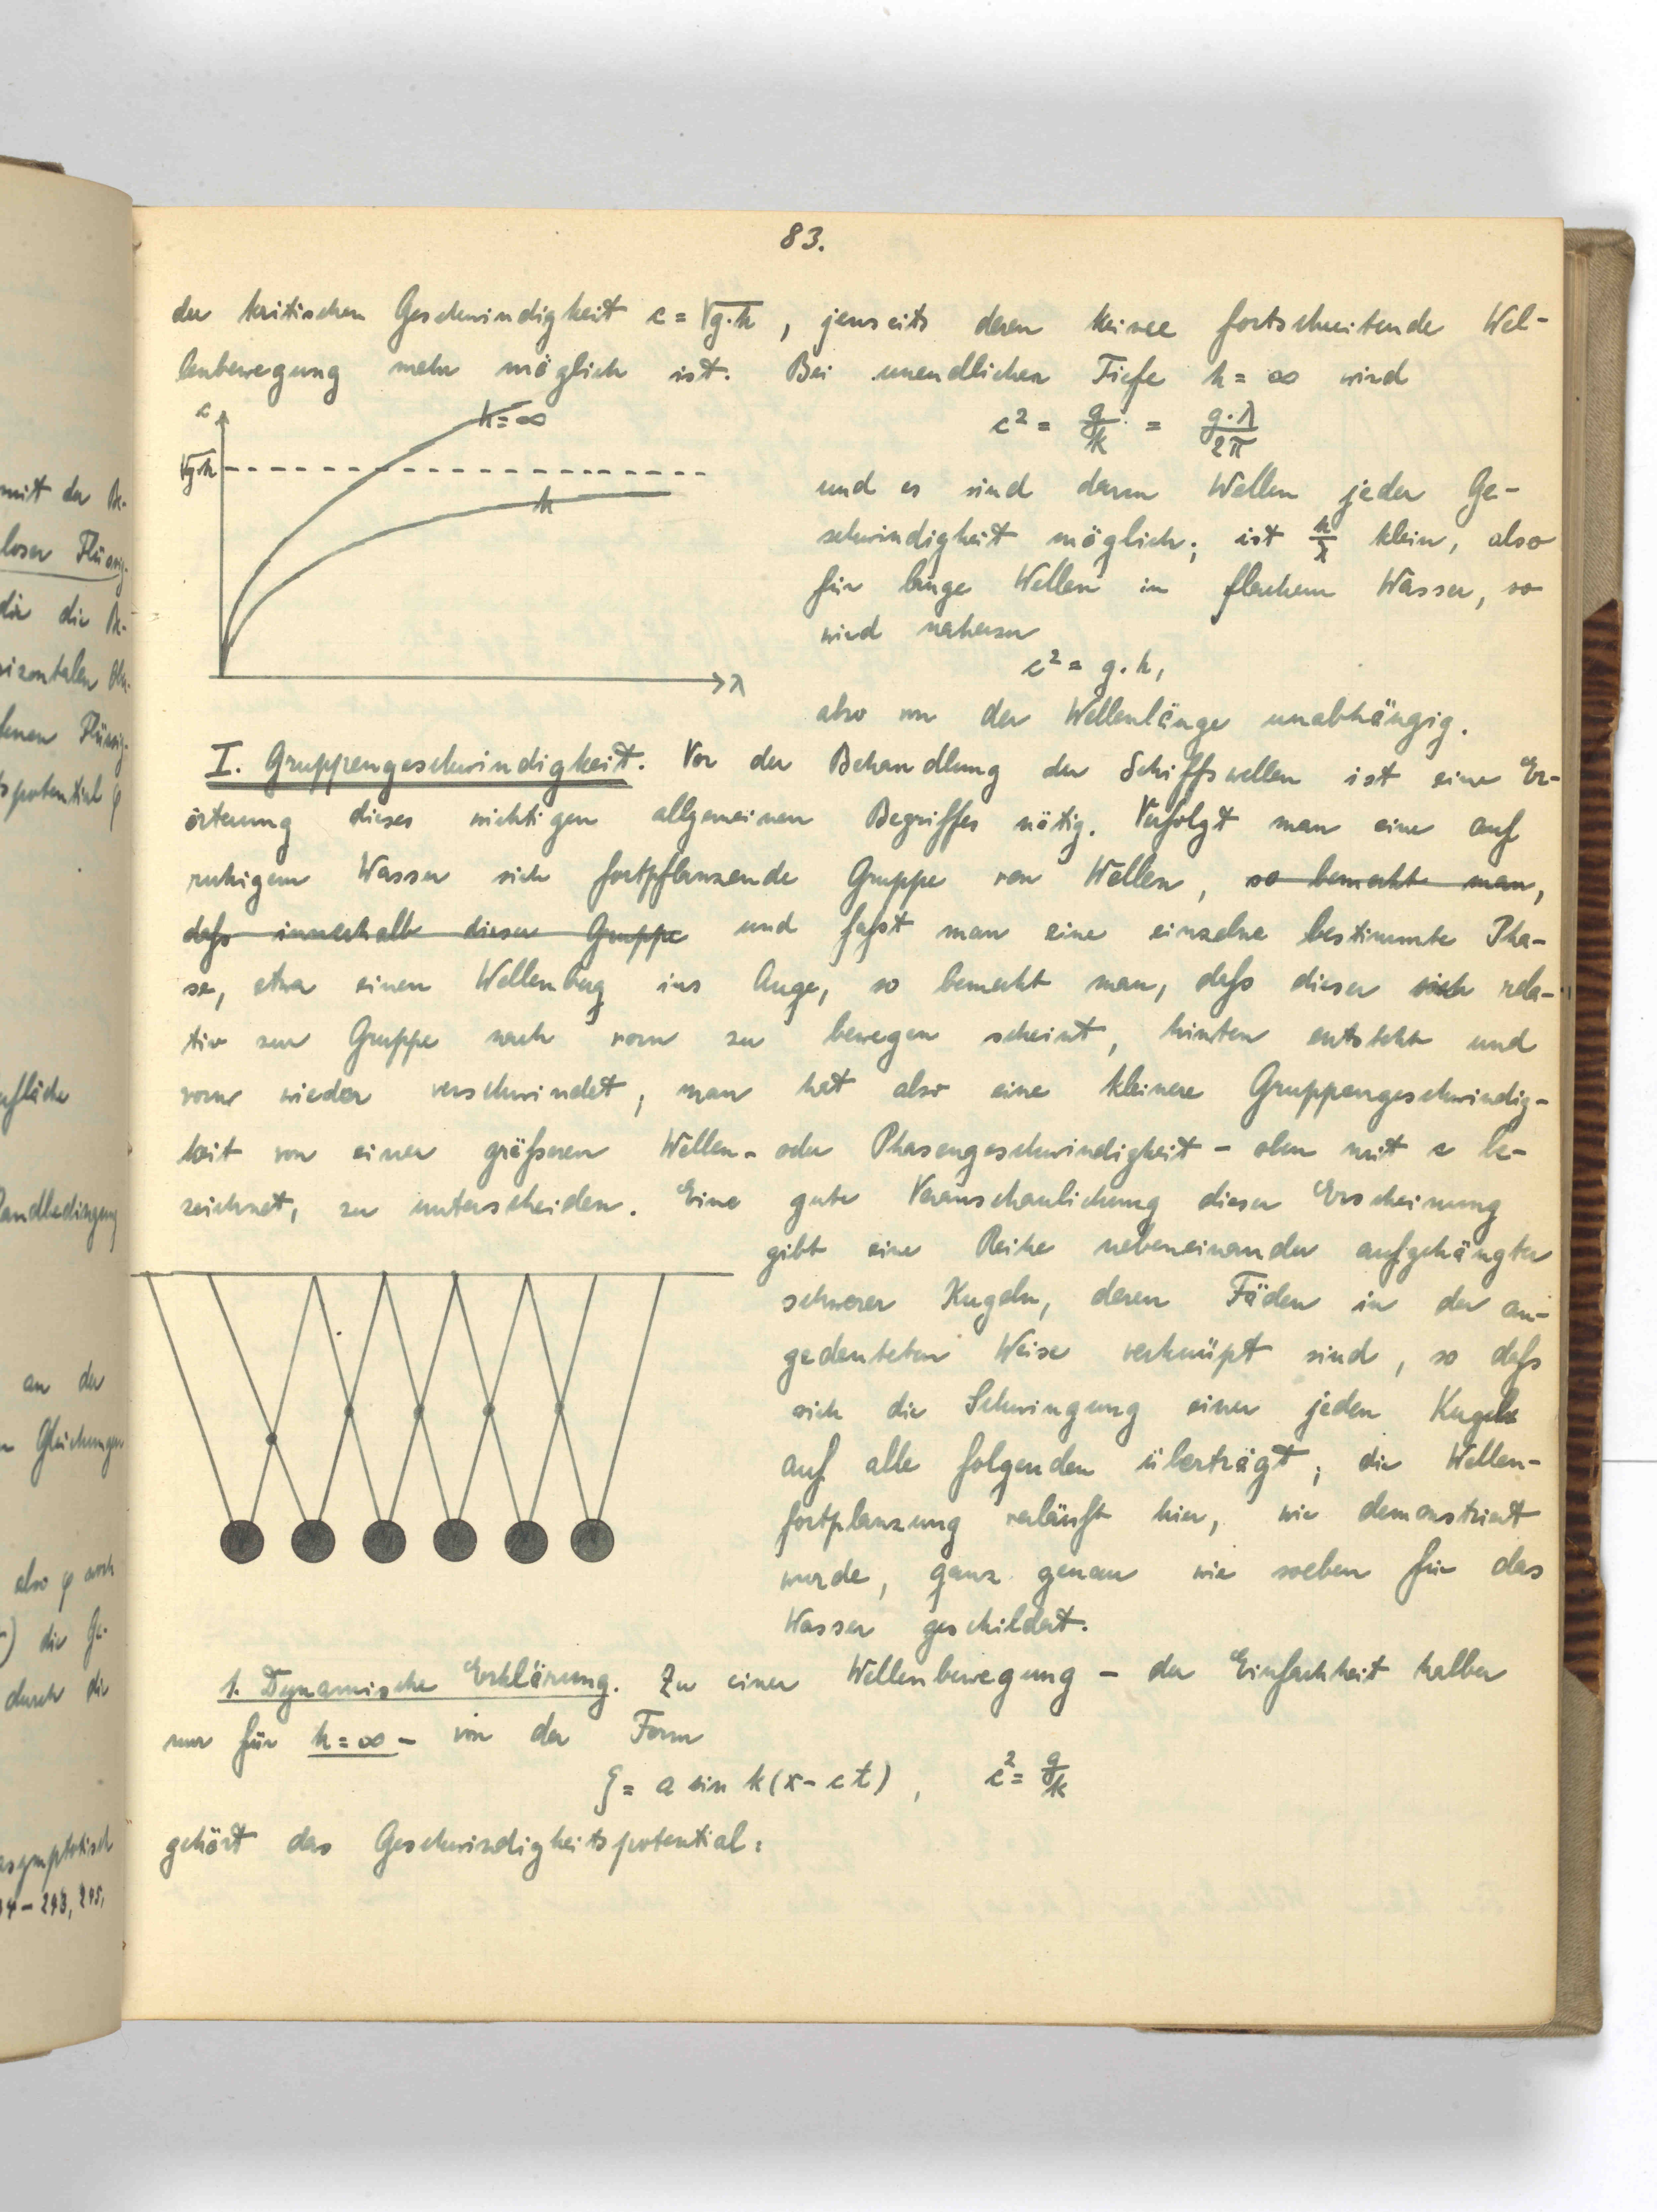 83.
der kritischen Geschwindigkeit c = √g.h, jenseits deren keine fortschreitende Wel-
lenbewegung mehr möglich ist. Bei unendlicher Tiefe h = ∞ wird
c
h = ∞
c² = g/k = g.λ/2π
√g.h
h
λ
und es sind dann Wellen jeder Ge-
schwindigkeit möglich; ist h/λ klein, also
für lange Wellen in flachem Wasser, so
wird
c² = g.h,
also von der Wellenlänge unabhängig.
I. Gruppengeschwindigkeit. Vor der Behandlung der Schiffswellen ist eine Er-
örterung dieses wichtigen allgemeinen Begriffes nötig. Verfolgt man eine auf
ruhigem Wasser sich fortpflanzende Gruppe von Wellen, so bemerkt man,
daß innerhalb dieser Gruppe und faßt man eine einzelne bestimmte Pha-
se, etwa einen Wellenberg ins Auge, so bemerkt man, daß dieser sich rela-
tiv zur Gruppe nach vorn zu bewegen scheint, hinten entsteht und
vorne wieder verschwindet, man hat also eine kleinere Gruppengeschwindig-
keit von einer größeren Wellen- oder Phasengeschwindigkeit - oben mit c be-
zeichnet, zu unterscheiden. Eine gute Veranschaulichung dieser Erscheinung
gibt eine Reihe nebeneinander aufgehängter
schwerer Kugeln, deren Fäden in der an-
gedeuteten Weise verknüpft sind, so daß
sich die Schwingung einer jeden Kugel
auf alle folgenden überträgt; die Wellen-
fortplanzung verläuft hier, wie demonstriert
wurde, ganz genau wie soeben für das
Wasser geschildert.
1. Dynamische Erklärung. Zu einer Wellenbewegung - der Einfachheit halber
nur für h = ∞ - von der Form
ζ = a sin k(x - ct), c² = g/k
gehört das Geschwindigkeitspotential:
mit der Be-
loser Flüssig-
die die Be-
rizontalen
Flüssig-
spotential φ
rfläche
Randbedingung
an der
Gleichungen
also φ auch
die Ge-
durch die
asymptotisch